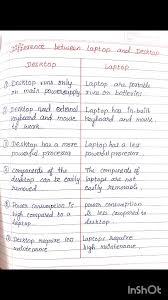 Difference between Laptop and Desktop
Desktop
Laptop
① Desktop runs only
on main power supply
Laptop are portable
runs on batteries
② Desktop need external
keyboard and mouse
to work
Laptop has in-built
keyboard and mouse.
③ Desktop has a more
powerful processor
Laptop has a less
powerful processor.
④ components of the
desktop can be easily
removed
The components of
laptops are not
easily removable.
⑤ Power consumption is
high compared to a
laptop
power consumption
is less compared to
desktop.
⑥ Desktop require less
maintenance
Laptops require
high maintenance.
InShot